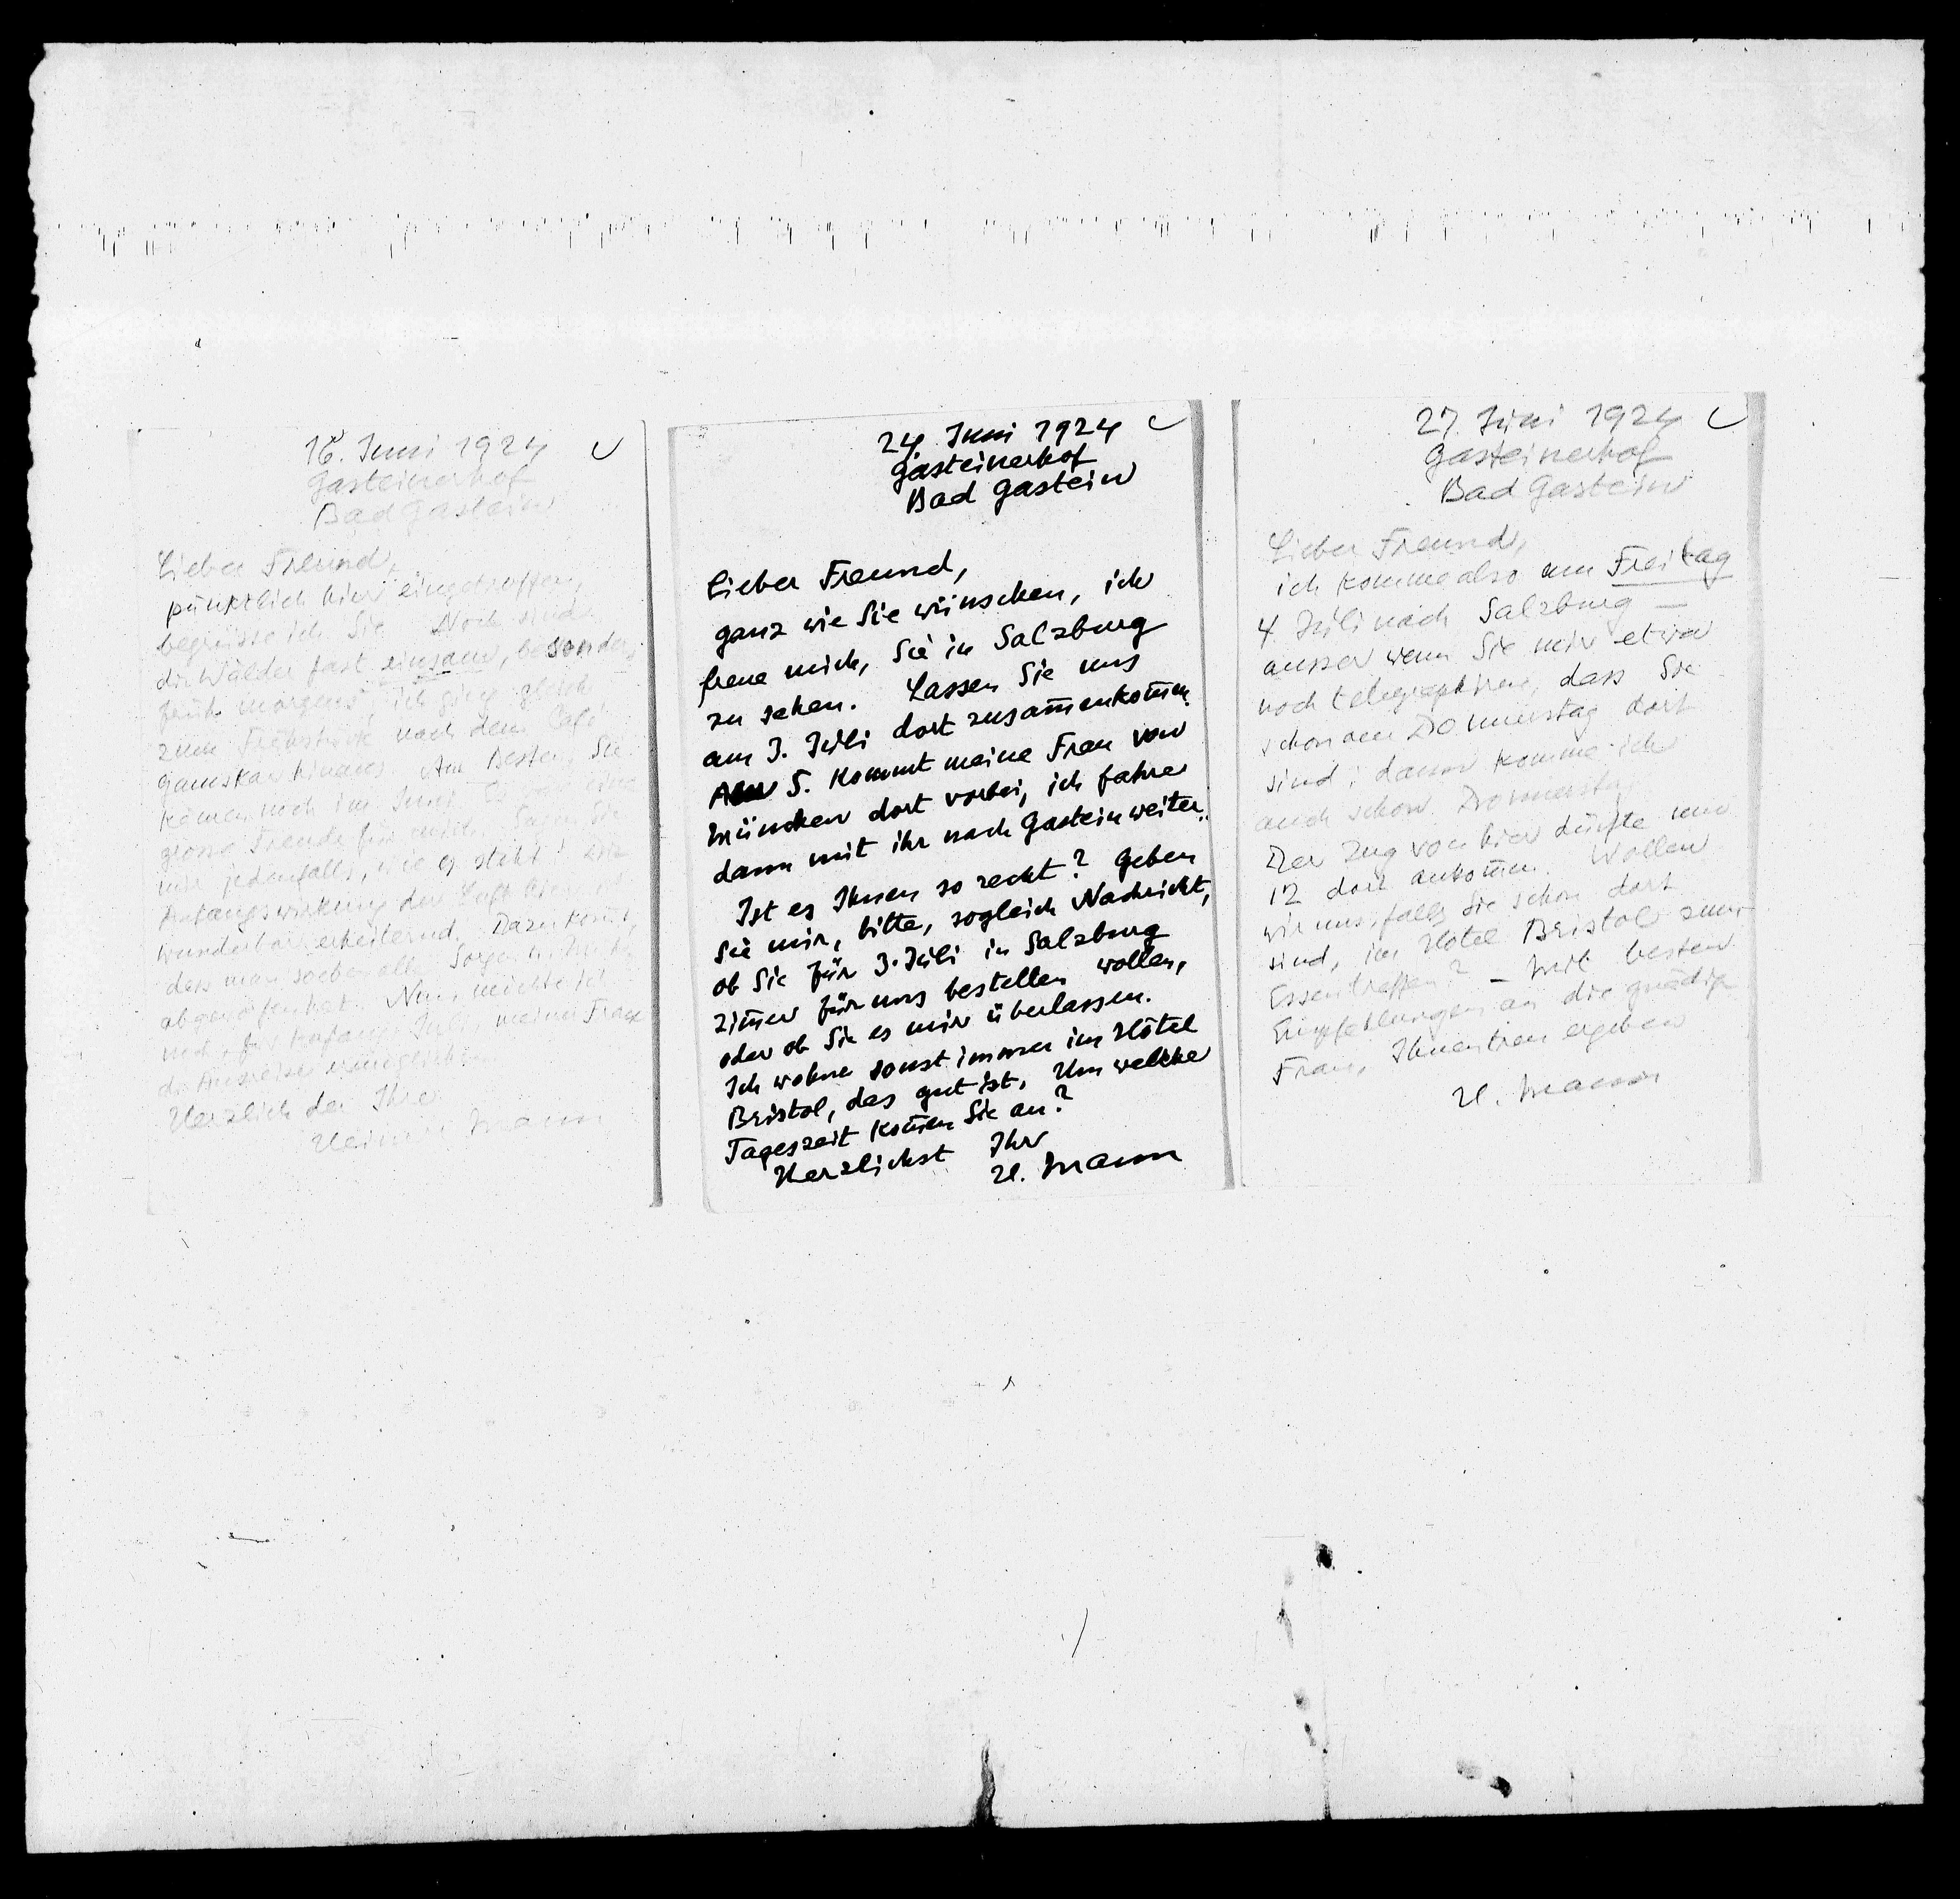 16. Juni 1924
Gasteinerhof
Bad Gastein
Lieber Freund,
pünktlich hier eingetroffen,
begrüsse ich Sie. Noch sind
die Wälder fast einsam, besonders
früh morgens, ich ging gleich
zum Frühstück nach dem Café
Gamskar hinaus. Am Besten, Sie
kom̄en noch im Juni. Es wär eine
grosse Freude für mich. Sagen Sie
mir jedenfalls, wie es steht! Die
Anfangswirkung der Luft hier ist
wunderbar erheiternd. Dazu kom̄t,
dass man soeben alle Sorgen
abgeworfen hat. Nun möchte ich
noch, für Anfang Juli meiner Frau
die Ausreise ermöglichen.
Herzlich der Ihre
Heinrich Mann
24. Juni 1924
Gasteinerhof
Bad Gastein
Lieber Freund,
ganz wie Sie wünschen, ich
freue mich, Sie in Salzburg
zu sehen. Lassen Sie uns
am 3. Jŭli dort zusam̄enkom̄en.
Am 5. kommt meine Frau von
München dort vorbei, ich fahre
dann mit ihr nach Gastein weiter.
Ist es Ihnen so recht? Geben
Sie mir, bitte, sogleich Nachricht,
ob Sie für 3. Jŭli in Salzburg
Zim̄er für uns bestellen wollen,
oder ob Sie es mir überlassen.
Ich wohne sonst immer im Hôtel
Bristol, das gut ist. Um welche
Tageszeit kom̄en Sie an?
Herzlichst Ihr
H. Mann
27. Jŭni 1924
Gasteinerhof
Bad Gastein
Lieber Freund,
ich komme also am Freitag
4 Jŭli nach Salzburg —
ausser wenn Sie mir etwa
noch telegraphiren, dass Sie
schon am Donnerstag dort
sind: dann komme ich
auch schon Donnerstag.
Der Zug von hier dürfte um
12 dort ankom̄en. Wollen
wir uns, falls Sie schon dort
sind, im Hôtel Bristol zum
Essen treffen? — Mit besten
Empfehlungen an die gnädige
Frau, Ihnen treu ergeben
H. Mann